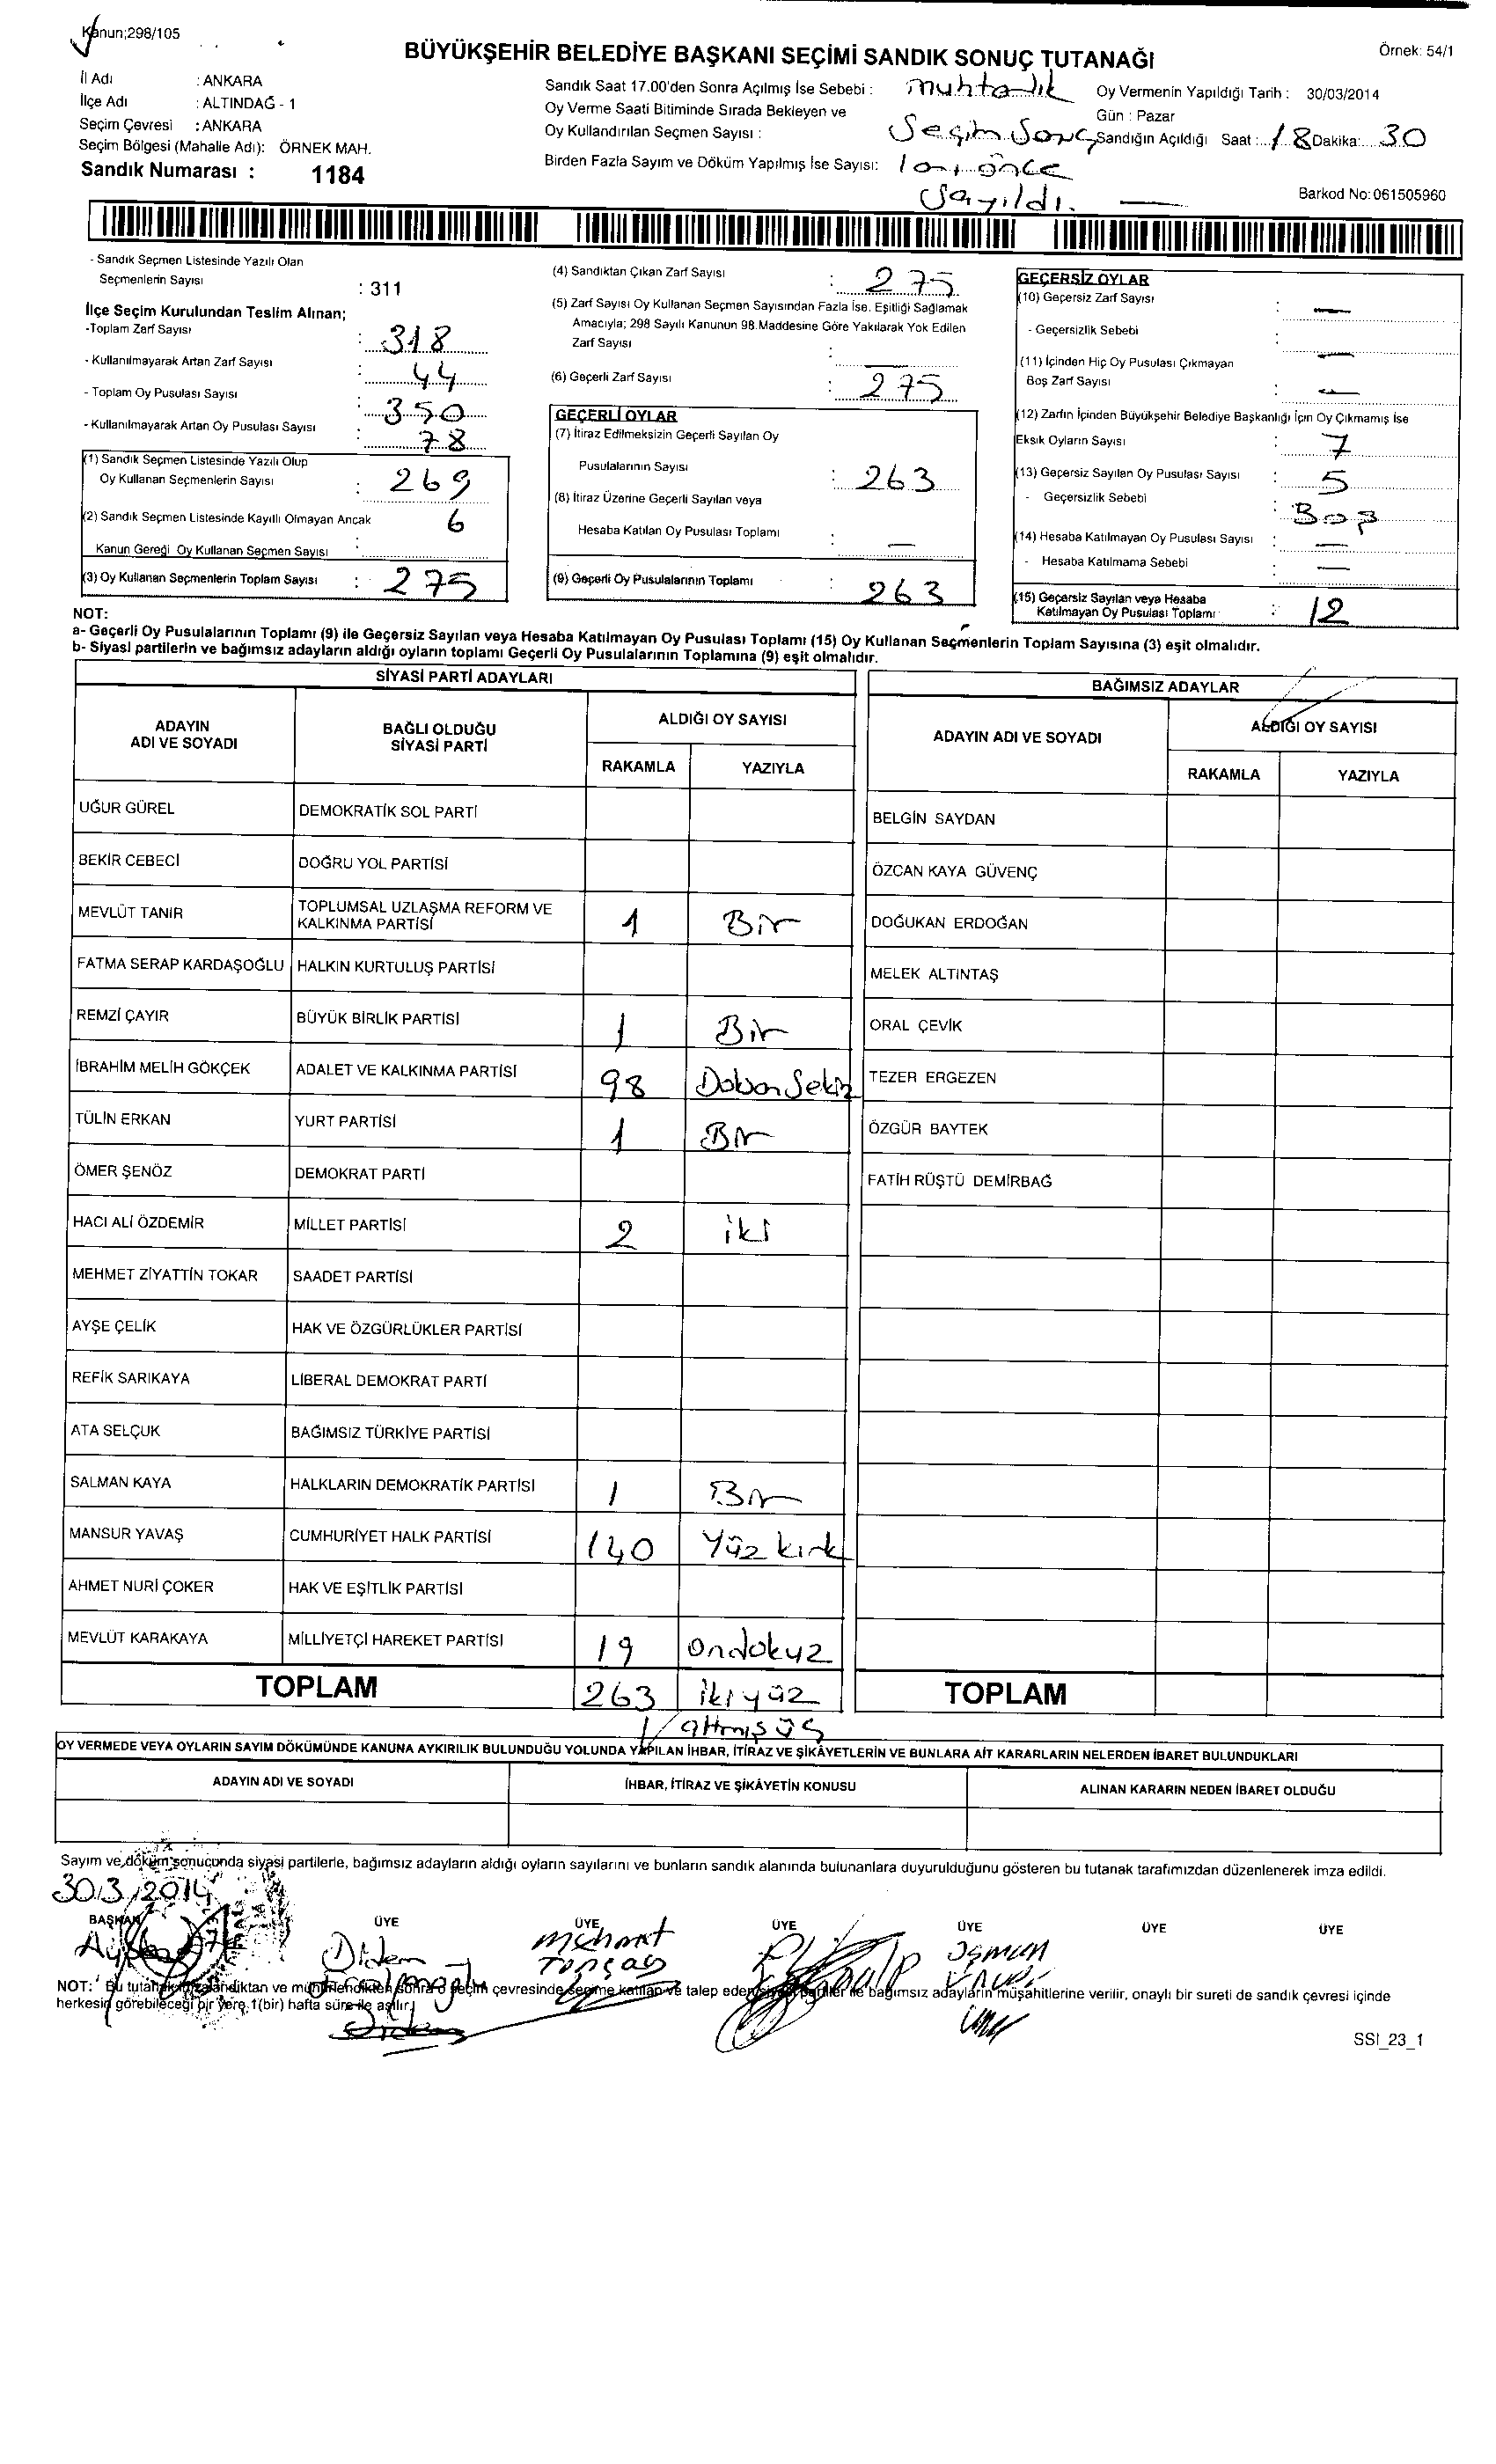 Kanun;298/105
BÜYÜKŞEHİR BELEDİYE BAŞKANI SEÇİMİ SANDIK SONUÇ TUTANAĞI
Örnek: 54/1
İl Adı : ANKARA
İlçe Adı : ALTINDAĞ - 1
Seçim Çevresi : ANKARA
Seçim Bölgesi (Mahalle Adı): ÖRNEK MAH.
Sandık Numarası : 1184
Sandık Saat 17.00'den Sonra Açılmış İse Sebebi : muhtarlık
Oy Verme Saati Bitiminde Sırada Bekleyen ve
Oy Kullandırılan Seçmen Sayısı : Seçim
Birden Fazla Sayım ve Döküm Yapılmış İse Sayısı: önce
sayıldı. —
Oy Vermenin Yapıldığı Tarih : 30/03/2014
Gün : Pazar
Sandığın Açıldığı Saat : 18 Dakika: 30
Barkod No: 061505960
- Sandık Seçmen Listesinde Yazılı Olan
Seçmenlerin Sayısı : 311
İlçe Seçim Kurulundan Teslim Alınan;
-Toplam Zarf Sayısı : 318
- Kullanılmayarak Artan Zarf Sayısı : 44
- Toplam Oy Pusulası Sayısı : 350
- Kullanılmayarak Artan Oy Pusulası Sayısı : 78
(1) Sandık Seçmen Listesinde Yazılı Olup
Oy Kullanan Seçmenlerin Sayısı : 269
(2) Sandık Seçmen Listesinde Kayıtlı Olmayan Ancak
Kanun Gereği Oy Kullanan Seçmen Sayısı : 6
(3) Oy Kullanan Seçmenlerin Toplam Sayısı : 275
(4) Sandıktan Çıkan Zarf Sayısı : 275
(5) Zarf Sayısı Oy Kullanan Seçmen Sayısından Fazla İse, Eşitliği Sağlamak
Amacıyla; 298 Sayılı Kanunun 98.Maddesine Göre Yakılarak Yok Edilen
Zarf Sayısı :
(6) Geçerli Zarf Sayısı : 275
GEÇERLİ OYLAR
(7) İtiraz Edilmeksizin Geçerli Sayılan Oy
Pusulalarının Sayısı : 263
(8) İtiraz Üzerine Geçerli Sayılan veya
Hesaba Katılan Oy Pusulası Toplamı : —
(9) Geçerli Oy Pusulalarının Toplamı : 263
GEÇERSİZ OYLAR
(10) Geçersiz Zarf Sayısı : —
- Geçersizlik Sebebi : —
(11) İçinden Hiç Oy Pusulası Çıkmayan
Boş Zarf Sayısı : —
(12) Zarfın İçinden Büyükşehir Belediye Başkanlığı İçin Oy Çıkmamış İse
Eksik Oyların Sayısı : 7
(13) Geçersiz Sayılan Oy Pusulası Sayısı : 5
- Geçersizlik Sebebi : Boş
(14) Hesaba Katılmayan Oy Pusulası Sayısı : —
- Hesaba Katılmama Sebebi : —
(15) Geçersiz Sayılan veya Hesaba
Katılmayan Oy Pusulası Toplamı : 12
NOT:
a- Geçerli Oy Pusulalarının Toplamı (9) ile Geçersiz Sayılan veya Hesaba Katılmayan Oy Pusulası Toplamı (15) Oy Kullanan Seçmenlerin Toplam Sayısına (3) eşit olmalıdır.
b- Siyasi partilerin ve bağımsız adayların aldığı oyların toplamı Geçerli Oy Pusulalarının Toplamına (9) eşit olmalıdır.
SİYASİ PARTİ ADAYLARI
ADAYIN ADI VE SOYADI
BAĞLI OLDUĞU SİYASİ PARTİ
ALDIĞI OY SAYISI
RAKAMLA YAZIYLA
UĞUR GÜREL DEMOKRATİK SOL PARTİ
BEKİR CEBECİ DOĞRU YOL PARTİSİ
MEVLÜT TANIR TOPLUMSAL UZLAŞMA REFORM VE KALKINMA PARTİSİ 1 Bir
FATMA SERAP KARDAŞOĞLU HALKIN KURTULUŞ PARTİSİ
REMZİ ÇAYIR BÜYÜK BİRLİK PARTİSİ 1 Bir
İBRAHİM MELİH GÖKÇEK ADALET VE KALKINMA PARTİSİ 98 Doksan Sekiz
TÜLİN ERKAN YURT PARTİSİ 1 Bir
ÖMER ŞENÖZ DEMOKRAT PARTİ
HACI ALİ ÖZDEMİR MİLLET PARTİSİ 2 iki
MEHMET ZİYATTİN TOKAR SAADET PARTİSİ
AYŞE ÇELİK HAK VE ÖZGÜRLÜKLER PARTİSİ
REFİK SARIKAYA LİBERAL DEMOKRAT PARTİ
ATA SELÇUK BAĞIMSIZ TÜRKİYE PARTİSİ
SALMAN KAYA HALKLARIN DEMOKRATİK PARTİSİ 1 Bir
MANSUR YAVAŞ CUMHURİYET HALK PARTİSİ 140 Yüz kırk
AHMET NURİ ÇOKER HAK VE EŞİTLİK PARTİSİ
MEVLÜT KARAKAYA MİLLİYETÇİ HAREKET PARTİSİ 19 Ondokuz
TOPLAM 263 iki yüz
altmış üç
BAĞIMSIZ ADAYLAR
ADAYIN ADI VE SOYADI
ALDIĞI OY SAYISI
RAKAMLA YAZIYLA
BELGİN SAYDAN
ÖZCAN KAYA GÜVENÇ
DOĞUKAN ERDOĞAN
MELEK ALTINTAŞ
ORAL ÇEVİK
TEZER ERGEZEN
ÖZGÜR BAYTEK
FATİH RÜŞTÜ DEMİRBAĞ
TOPLAM
OY VERMEDE VEYA OYLARIN SAYIM DÖKÜMÜNDE KANUNA AYKIRILIK BULUNDUĞU YOLUNDA YAPILAN İHBAR, İTİRAZ VE ŞİKÂYETLERİN VE BUNLARA AİT KARARLARIN NELERDEN İBARET BULUNDUKLARI
ADAYIN ADI VE SOYADI
İHBAR, İTİRAZ VE ŞİKÂYETİN KONUSU
ALINAN KARARIN NEDEN İBARET OLDUĞU
Sayım ve döküm sonucunda siyasi partilerle, bağımsız adayların aldığı oyların sayılarını ve bunların sandık alanında bulunanlara duyurulduğunu gösteren bu tutanak tarafımızdan düzenlenerek imza edildi.
30/3/2014
BAŞKAN ÜYE ÜYE ÜYE ÜYE ÜYE ÜYE
Didem
Osman
NOT: Bu tutanak imzalandıktan ve mühürlendikten sonra o seçim çevresinde seçime katılan ve talep eden siyasi partiler ile bağımsız adayların müşahitlerine verilir, onaylı bir sureti de sandık çevresi içinde
herkesin görebileceği bir yere 1(bir) hafta süre ile asılır.
SSI_23_1